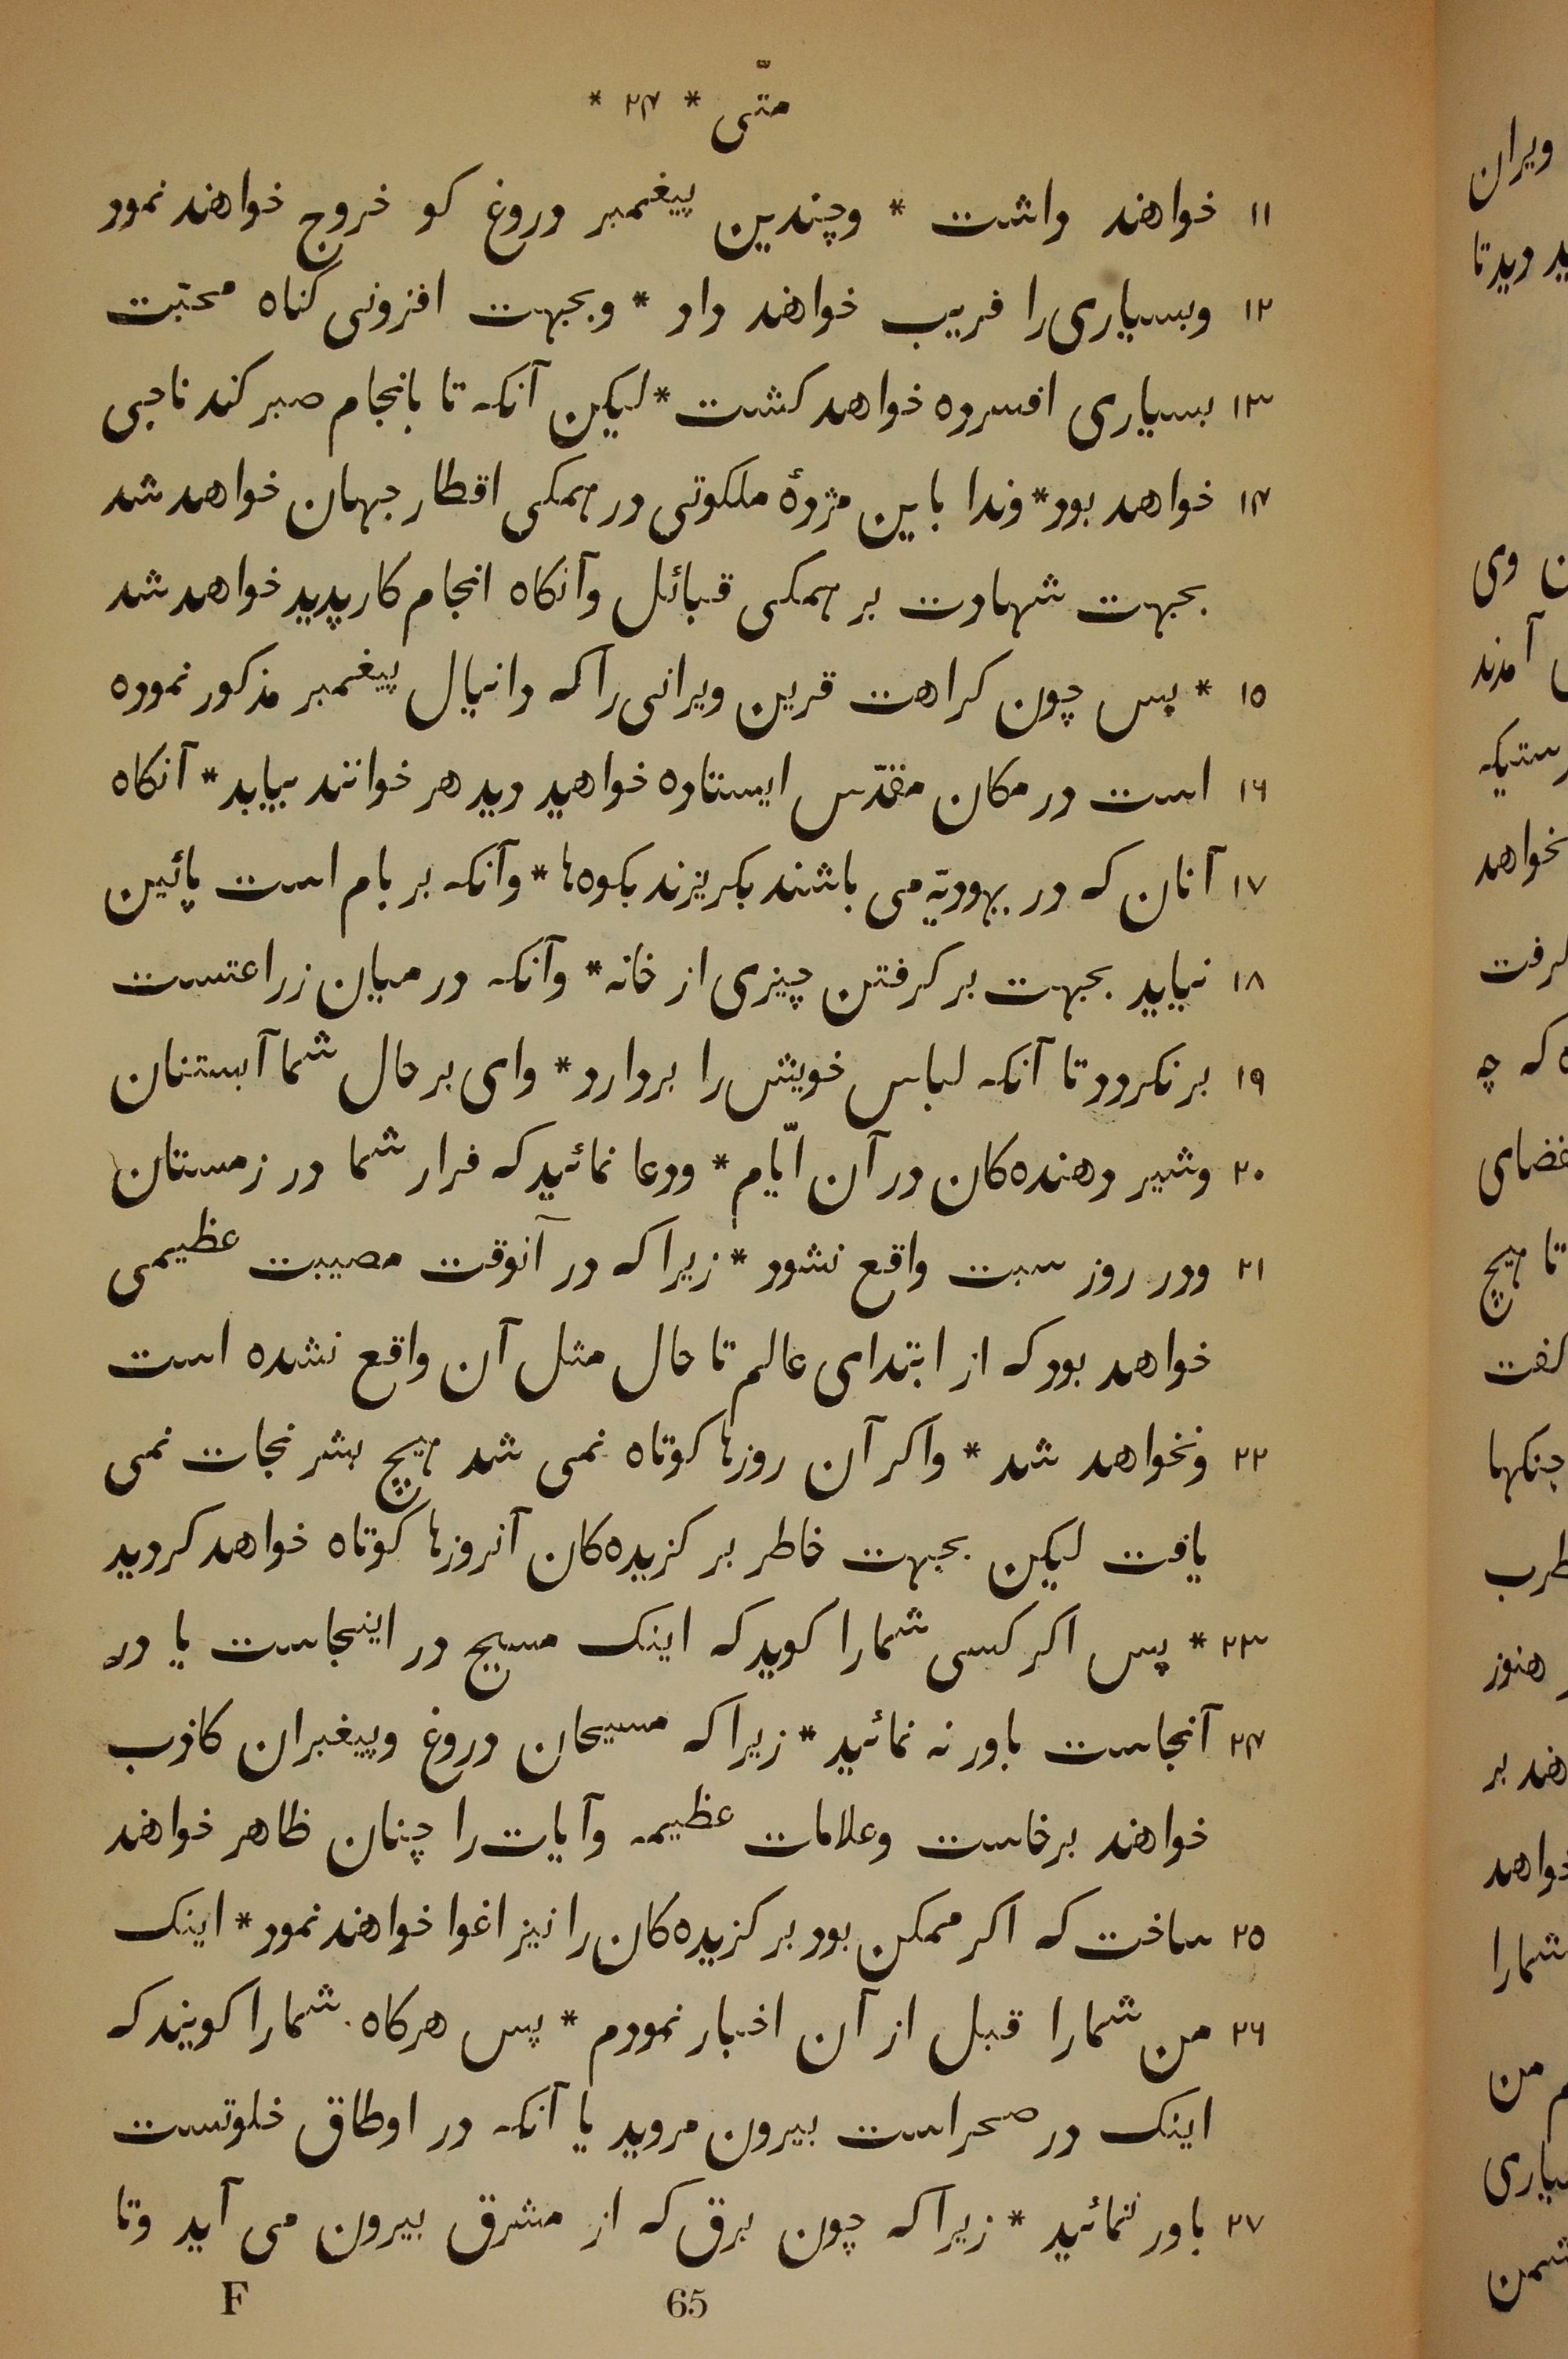 متّی * ۲۴ *
۱۱ خواهند داشت * وچندین پیغمبر دروغ کو خروج خواهند نمود
۱۲ وبسیاری را فریب خواهند داد * وبجبهت افزونی کناه محبّت
۱۳ بسیاری افسرده خواهد کشت * لیکن آنکه تا بانجام صبر کند ناجی
۱۴ خواهد بود * وندا باین مژدهٔ ملکوتی در همکی اقطار جهان خواهد شد
بجهت شهادت بر همکی قبائل وآنکاه انجام کار پدید خواهد شد
۱۵ * پس چون کراهت قرین ویرانی را که دانیال پیغمبر مذکور نموده
۱۶ است در مکان مقدّس ایستاده خواهید دید هر خوانند بیابد * آنکاه
۱۷ آنان که در یهودیّه می باشند بکریزند بکوه‌ها * وآنکه بر بام است پائین
۱۸ نیاید بجهت بر کرفتن چیزی از خانه * وآنکه در میان زراعتست
۱۹ برنکردد تا آنکه لباس خویش را بردارد * وای بر حال شما آبستنان
۲۰ وشیر دهنده‌کان در آن ایّام * ودعا نمائید که فرار شما در زمستان
۲۱ ودر روز سبت واقع نشود * زیرا که در آنوقت مصیبت عظیمی
خواهد بود که از ابتدای عالم تا حال مثل آن واقع نشده است
۲۲ ونخواهد شد * واکر آن روزها کوتاه نمی شد هیچ بشر نجات نمی
یافت لیکن بجهت خاطر بر کزیده‌کان آنروزها کوتاه خواهد کردید
۲۳ * پس اکر کسی شما را کوید که اینک مسیح در اینجاست یا در
۲۴ آنجاست باور نه نمائید * زیرا که مسیحان دروغ وپیغبران کاذب
خواهند برخاست وعلامات عظیمه وآیات را چنان ظاهر خواهند
۲۵ ساخت که اکر ممکن بود بر کزیده‌کان را نیز اغوا خواهند نمود * اینک
۲۶ من شما را قبل از آن اخبار نمودم * پس هرکاه شما را کویند که
اینک در صحراست بیرون مروید یا آنکه در اوطاق خلوتست
۲۷ باور ننمائید * زیرا که چون برق که از مشرق بیرون می آید وتا
65
F
ویران
ید دید تا
ن وی
آمدند
ستیکه
نخواهد
کرفت
ه که چه
عضای
تا هیچ
کفت
جنکها
طرب
هنوز
هند بر
خواهد
شما را
م من
سیاری
شمن